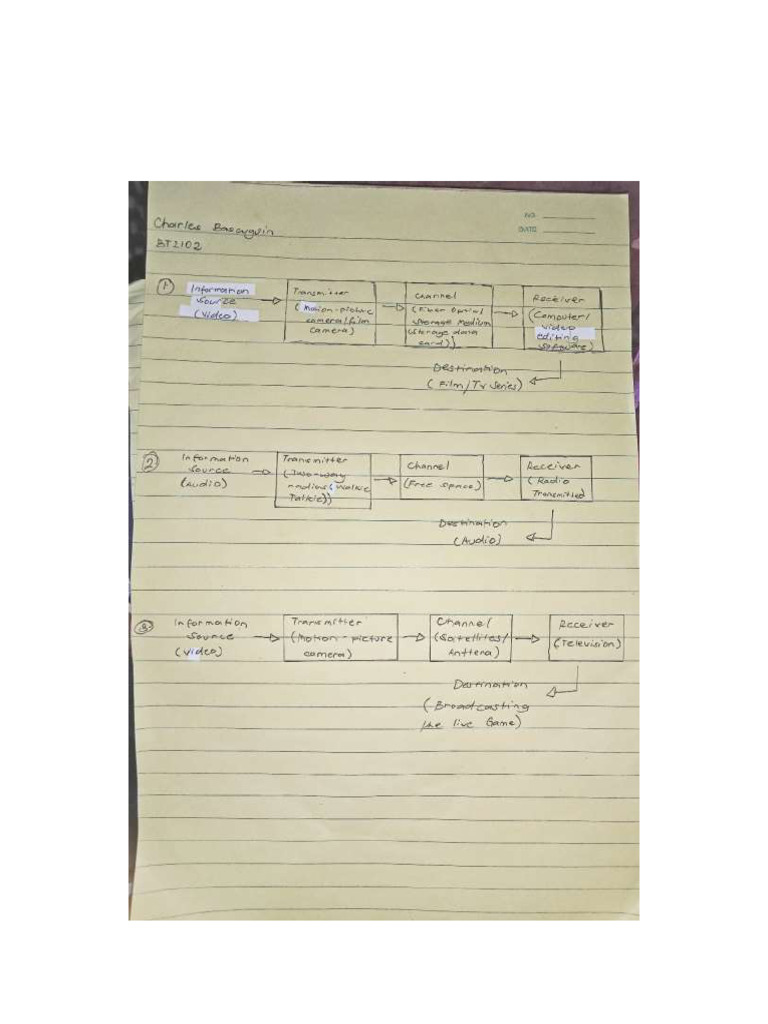 NO.
Charles
DATE
BT2102
1 Information Source (Video)
Transmitter (Motion-picture camera/film camera)
Channel (Fiber Optic/ Storage Medium (storage data card))
Receiver (Computer/ video editing software)
Destination
(Film/TV Series)
2 Information Source (Audio)
Transmitter (Two-way radios (Walkie Talkie))
Channel (Free space)
Receiver (Radio Transmitted
Destination
(Audio)
3 Information Source (Video)
Transmitter (Motion-picture camera)
Channel (Satellites/ Anttena)
Receiver (Television)
Destination
(Broadcasting
the live Game)